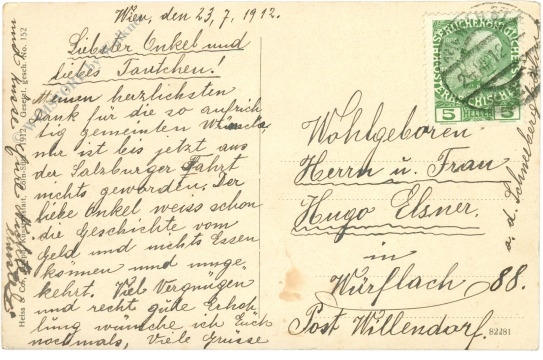 Wien, den 23, 7, 1912.
Liebster Onkel und
liebes Tantchen!
Meinen herzlichsten
Dank für die so aufrich-
tig gemeinten Wünsche
mir ist bis jetzt aus
der Salzburger Fahrt
nichts geworden. Der
liebe Onkel weiss schon
die Geschichte vom
Geld und nichts Essen
können und umge-
kehrt. Viel Vergnügen
und recht gute Erho-
lung wünsche ich Euch
nochmals, Viele Grüsse
5 HELLER 5
Wohlgeboren
Herrn u. Frau
Hugo Elsner.
in
Würflach 88.
Post Willendorf.
a. d. Schneebergbahn
82281